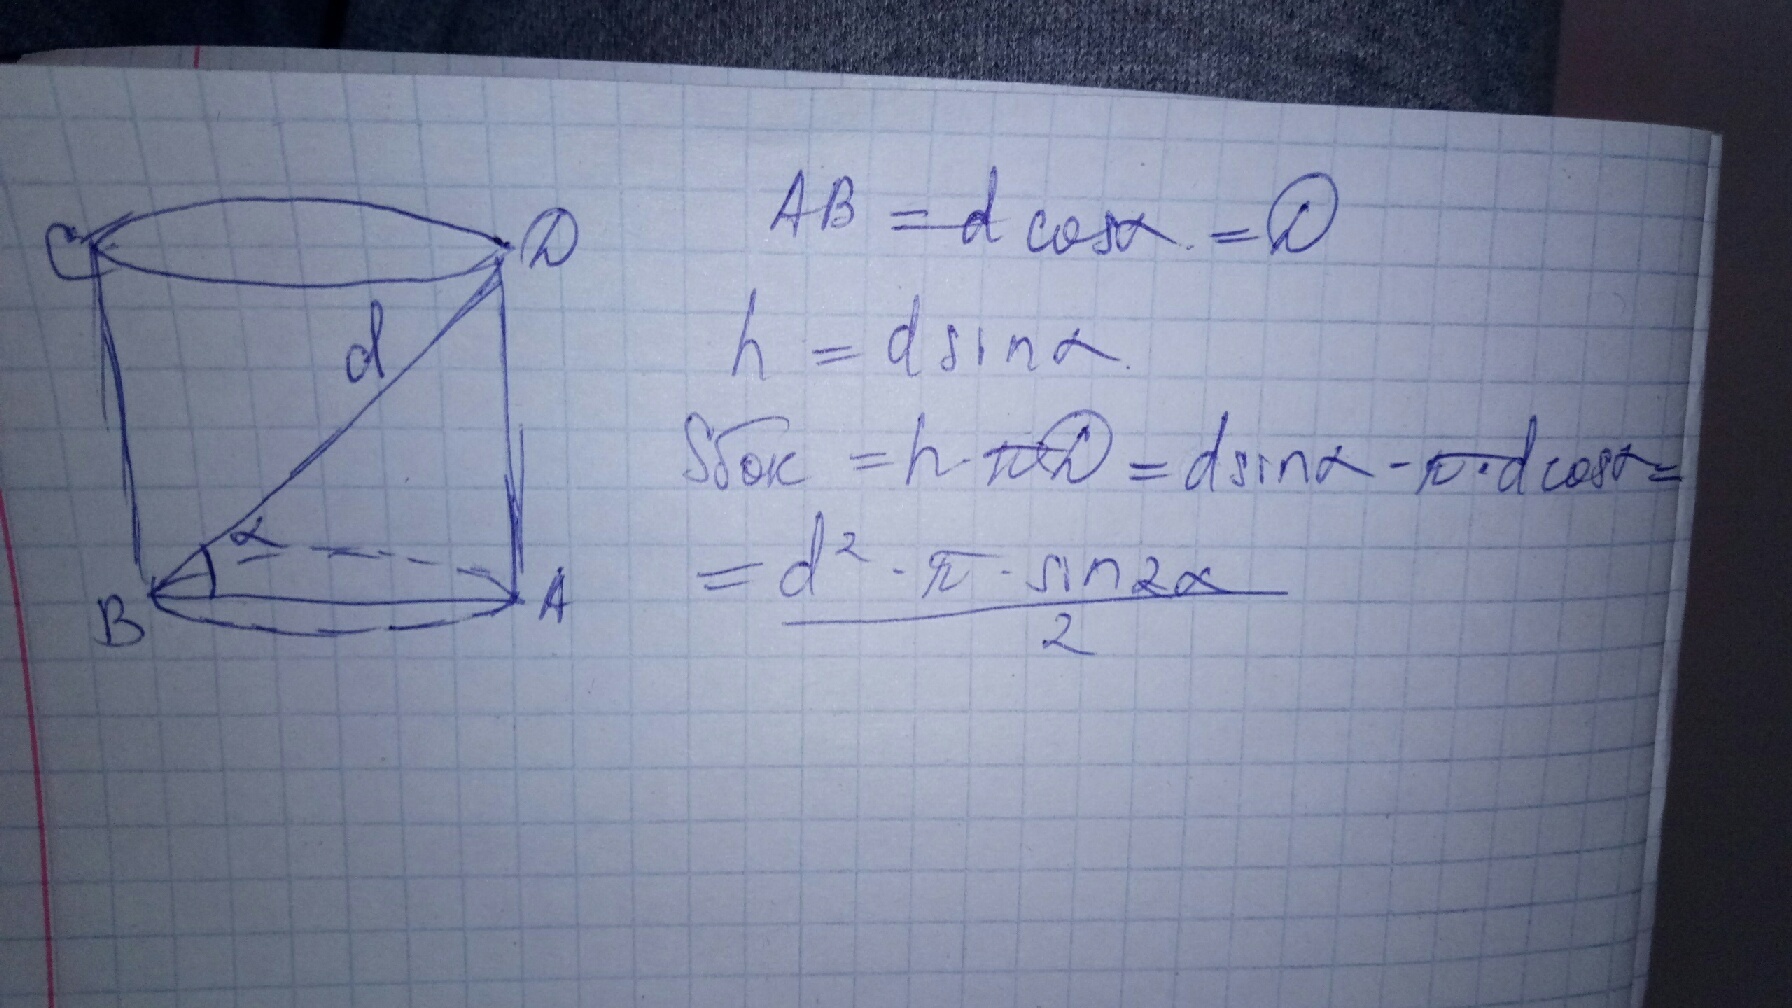 C D
d
α
B A
AB = d cosα. = D
h = d sinα.
Sбок = h · πD = d sinα · π · d cosα =
= d² · π · sin2α
2